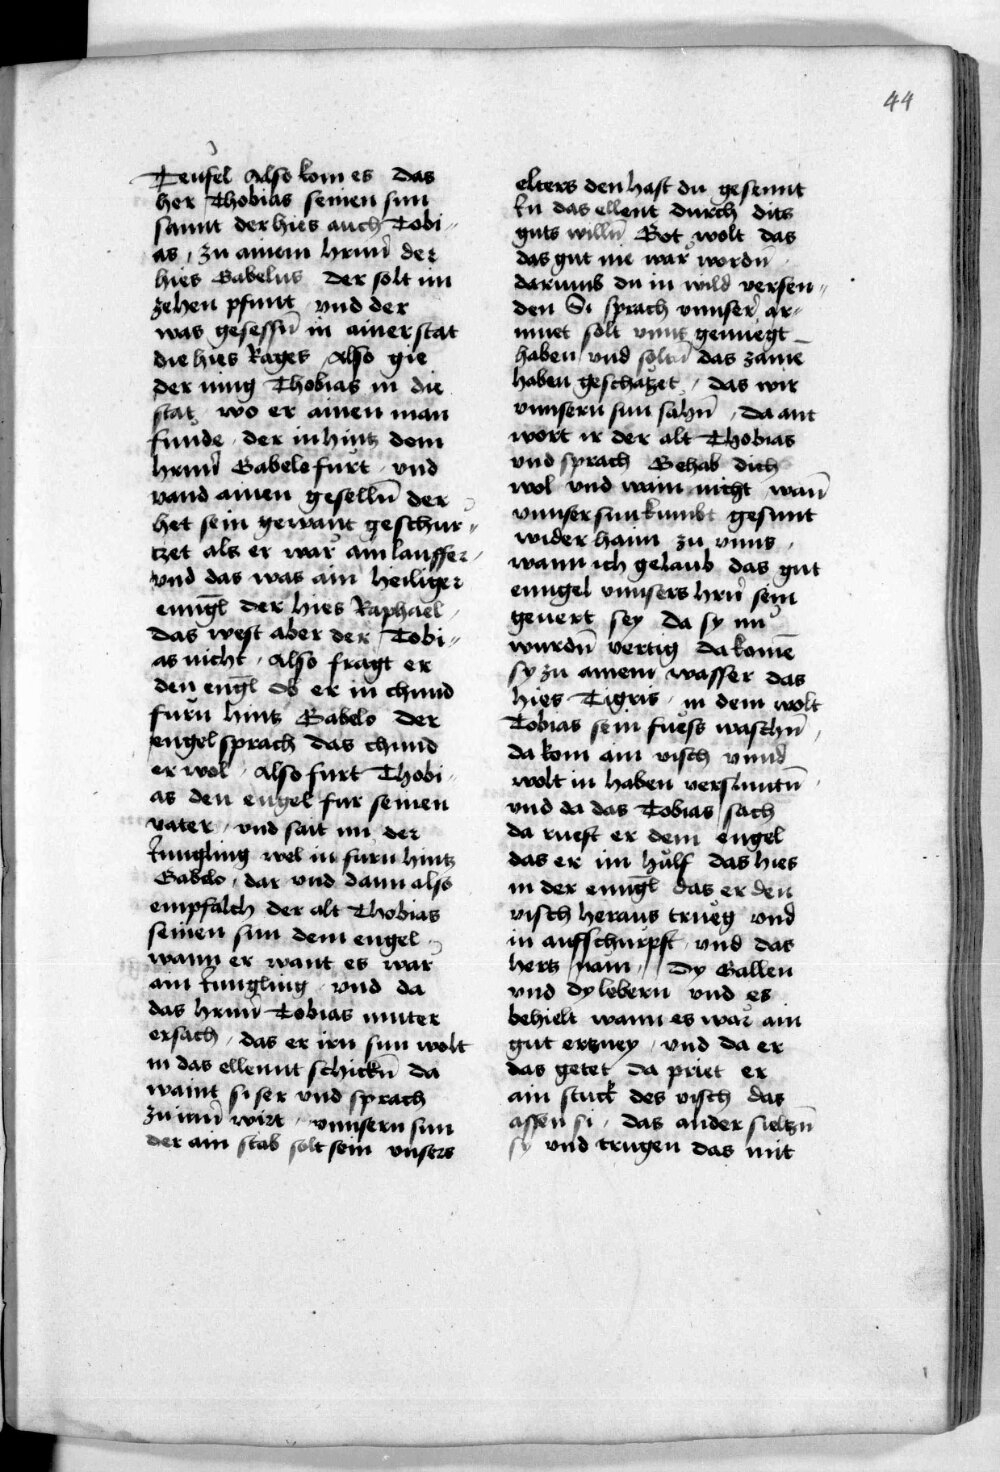 44
Teufel Also kom es das
her Thobias seinen sun
sannt der hies auch Tobi-
as, zu ainem hrnn der
hies Gabelus der solt im
zehen pfunt und der
was gesessn̄ in ainer stat
die hies Rages Also gie
der iung Thobias in die
stat wo er ainen man
funde der in hintz dem
hrnn Gabelo furt und
vand ainen geselln̄ der
het sein gewant geschur-
tzet als er war ain lauffer
und das was ain heiliger
enngl̄ der hies Raphael
das west aber der Tobi-
as nicht Also fragt er
den engl̄ ob er in chund
furn hintz Gabelo Der
engel sprach das chund
er wol Also furt Thobi-
as den engel fur seinen
vater und sait im der
Jungling wel in furn hintz
Gabelo dar und dann also
empfalch der alt Thobias
seinen sun dem engel
wann er want es war
ain Jungling und da
das hrnn Tobias muter
ersach das er irn sun wolt
in das ellennt schickn̄ da
waint si ser und sprach
zu irm wirt unnsern sun
der ain stab solt sein unsers
elters den hast du gesennt
In das ellent durch dits
guts willn̄ Got wolt das
das gut nie war wordn̄
darumb du in wild versen-
den Si sprach unnser ar-
muet solt unns genuegt
haben und soltn̄ das zame
haben geschatzet das wir
unnsern sun sahn̄ da ant
wort ir der alt Thobias
und sprach Gehab dich
wol und wain nicht wan̄
unnser sun kumbt gesunt
wider haim zu unns
wann ich gelaub das gut
enngel unnsers hrn̄ sein
gevert sey da sy nu
wurdn̄ vertig da komē
sy zu ainem wasser das
hies Tigris in dem wolt
Tobias sein fuess waschn̄
da kom ain visch unnd
wolt in haben verslunntn̄
und da das Tobias sach
da rueft er dem engel
das er im hulf das hies
in der enngl̄ das er den
visch heraus trueg und
in aufschurpft und das
herts nam Dy Gallen
und dy lebern und es
behielt wann es war ain
gut ertzney und da er
das getet da priet er
ain stuck des visch das
assen si das ander sieltzn̄
sy und trugen das mit